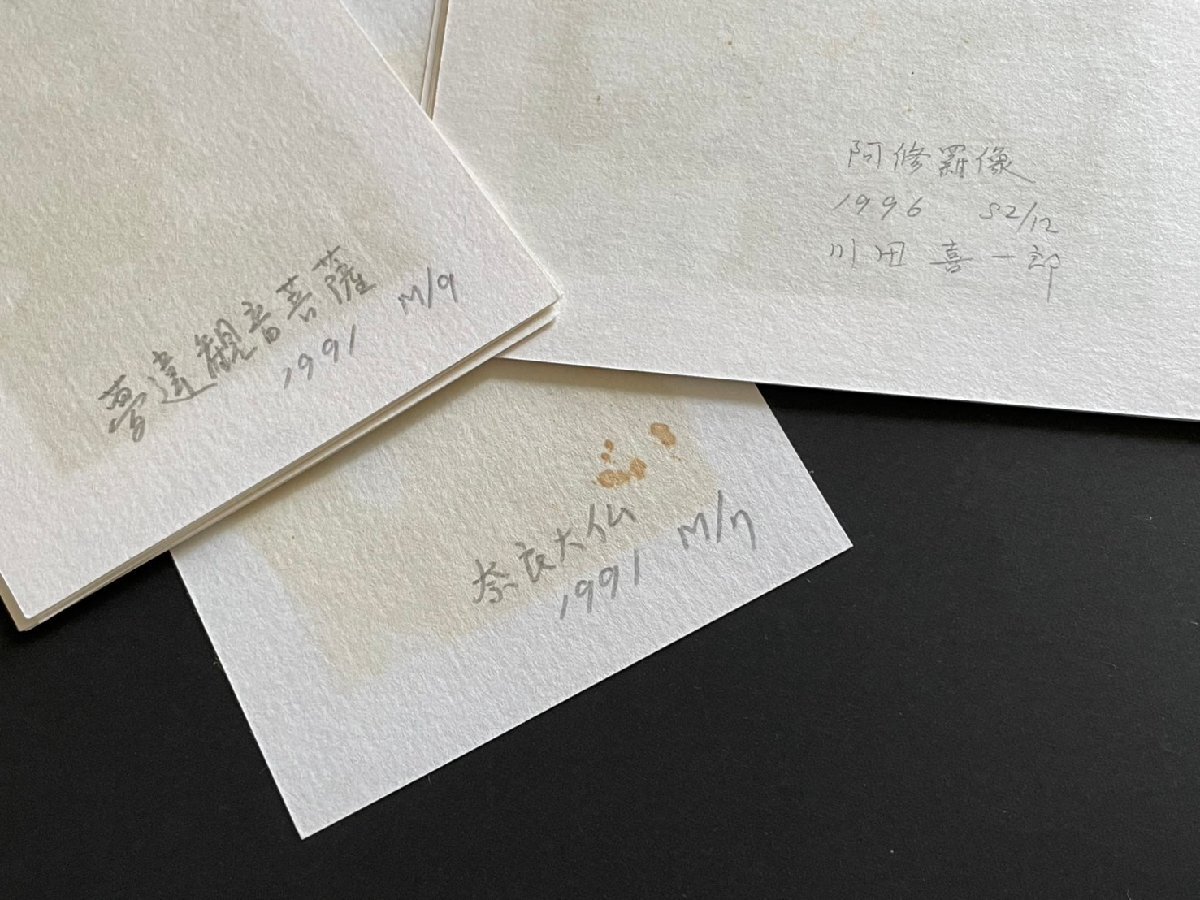 夢違観音菩薩
1991 M/9
阿修羅像
1996 S2/12
川田喜一郎
奈良大仏
1991 M/7